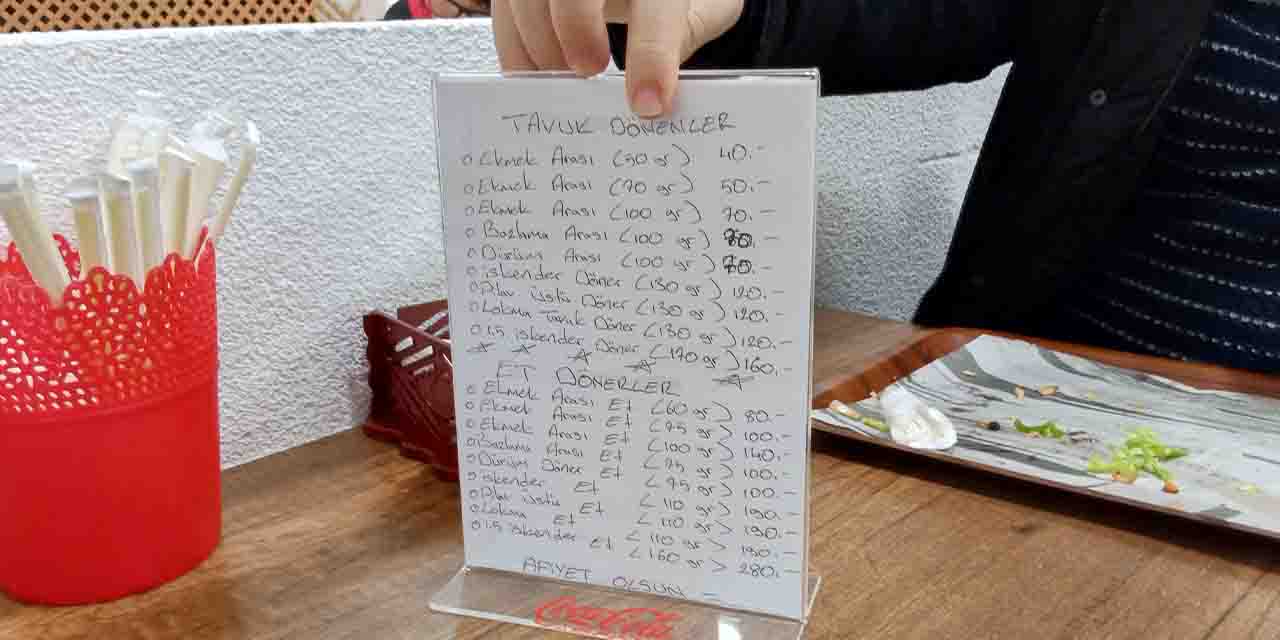 TAVUK DÖNERLER
o Ekmek Arası (50 gr) 40.-
o Ekmek Arası (70 gr) 50.-
o Ekmek Arası (100 gr) 70.-
o Bazlama Arası (100 gr) 80.-
o Dürüm Arası (100 gr) 70.-
o iskender Döner (130 gr) 120.-
o Pilav Üstü Döner (130 gr) 120.-
o Lokma Tavuk Döner (130 gr) 120.-
o 1.5 iskender Döner (170 gr) 160.-
ET DÖNERLER
o Ekmek Arası Et (60 gr) 80.-
o Ekmek Arası Et (75 gr) 100.-
o Ekmek Arası Et (100 gr) 140.-
o Bazlama Arası Et (75 gr) 100.-
o Dürüm Döner Et (75 gr) 100.-
o iskender Et (110 gr) 190.-
o Pilav Üstü Et (110 gr) 190.-
o Lokma Et (110 gr) 190.-
o 1.5 iskender Et (160 gr) 280.-
AFİYET OLSUN -
Coca-Cola